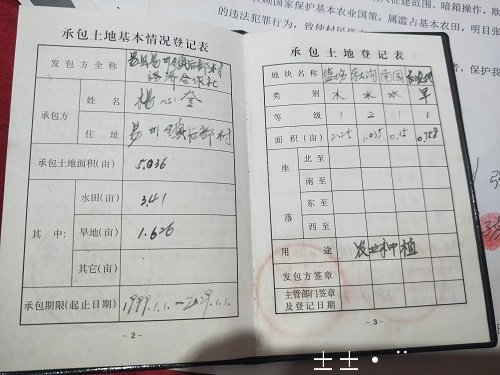 承包土地基本情况登记表
发包方全称
经济合作社
承包方
姓名
杨心奎
住址
易州镇后部村
承包土地面积(亩)
5.036
其中:
水田(亩)
3.41
旱地(亩)
1.626
其它(亩)
承包期限(起止日期)
1999.1.1.—2029.1.1.
- 2 -
承包土地登记表
地块名称
南园
类别
水 水 水 旱
等级
1 2 1 1
面积(亩)
2.25 1.035 0.15 0.758
座落
北至
南至
东至
西至
用途
农业种植
发包方签章
主管部门签章
及登记日期
- 3 -
国家保护基本农业国策,属滥占基本农田,明目张
的违法犯罪行为,致使村民